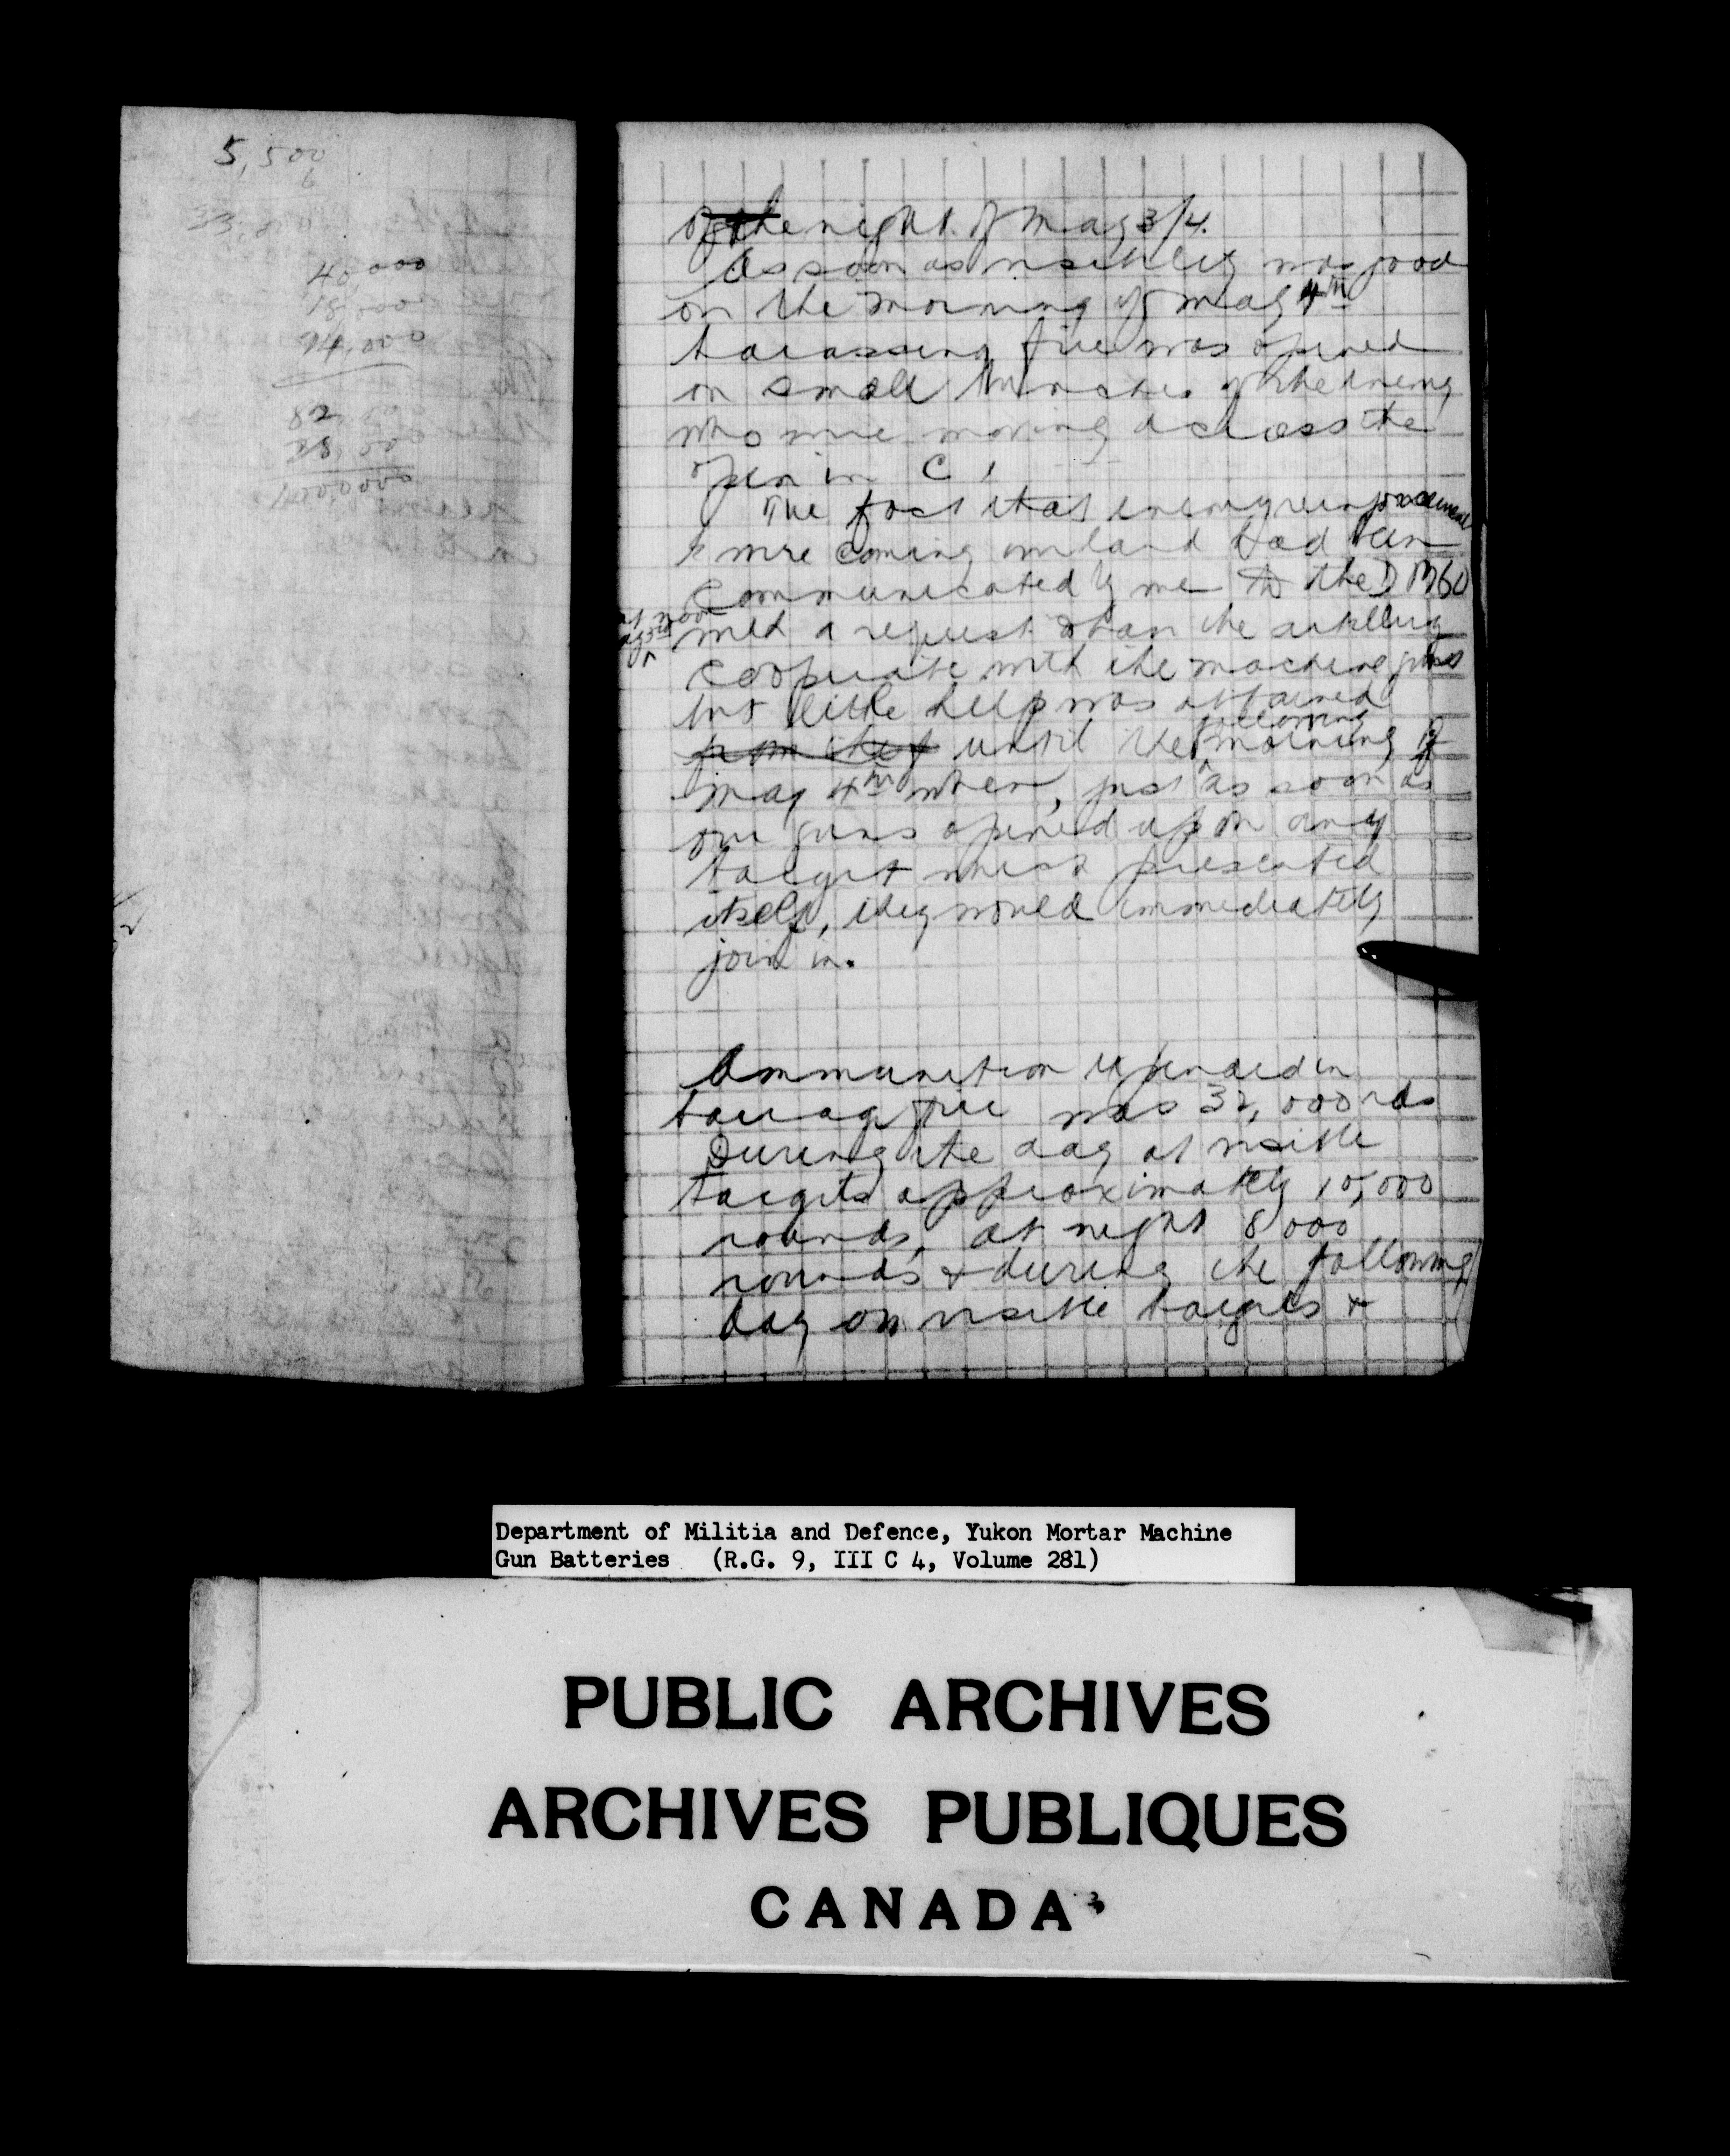 5,500
6
33,000
40,000
18,000
24,000
82,000
18,000
100,000
of the night of May 3/4.
As soon as visibility was good
on the morning of May 4th
harassing fire was opened
on small bunches of the enemy
who were moving across the
open in C 1
The fact that enemy reinforcement
s were coming overland had been
communicated by me to the DMGO
at noon
with a request than the artillery
cooperate with the machine guns
but little help was obtained
following
from them until the morning of
May 4th when, just as soon as
our guns opened upon any
target which presented
itself, they would immediately
join in.
Ammunition expended in
barrage fire was 32,000 rds
During the day at visible
targets approximately 10,000
rounds, at night 8000
rounds & during the following
day on visible targets &
Department of Militia and Defence, Yukon Mortar Machine
Gun Batteries (R.G. 9, III C 4, Volume 281)
PUBLIC ARCHIVES
ARCHIVES PUBLIQUES
CANADA